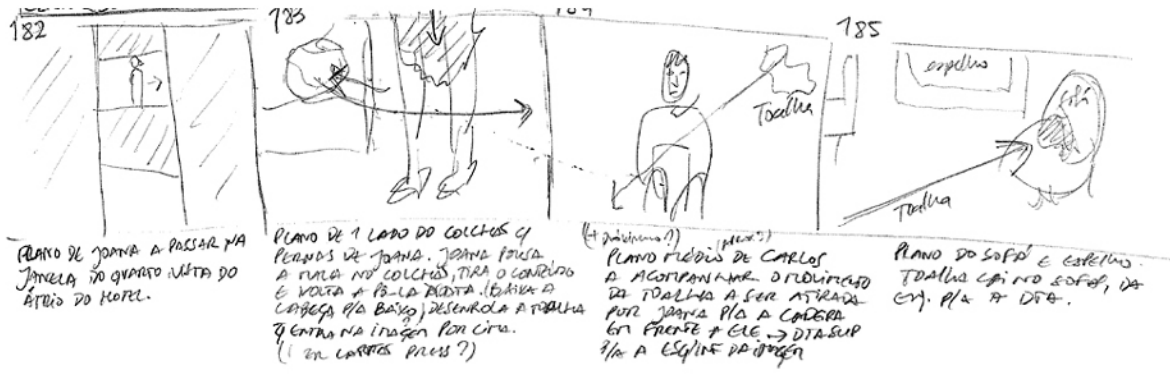 182
PLANO DE JOANA A PASSAR NA
JANELA DO QUARTO VISTA DO
ÁTRIO DO HOTEL.
183
PLANO DE 1 LADO DO COLCHÃO
PERNAS DE JOANA. JOANA POUSA
A MALA NO COLCHÃO, TIRA O CONTEÚDO
E VOLTA A PÔ-LA (BAIXA A
CABEÇA P/A BAIXO) DESENROLA A TOALHA
Q ENTRA NA IMAGEM POR CIMA.
184
Toalha
(+ próximo?)
PLANO MÉDIO DE CARLOS
A ACOMPANHAR O MOVIMENTO
DA TOALHA A SER ATIRADA
POR JOANA P/A A CADEIRA
EM FRENTE A ELE → DTA SUP
P/A A ESQ/INF DA IMAGEM
185
espelho
sofá
Toalha
PLANO DO SOFÁ E ESPELHO.
TOALHA CAI NO SOFÁ, DA
ESQ. P/A A DTA.